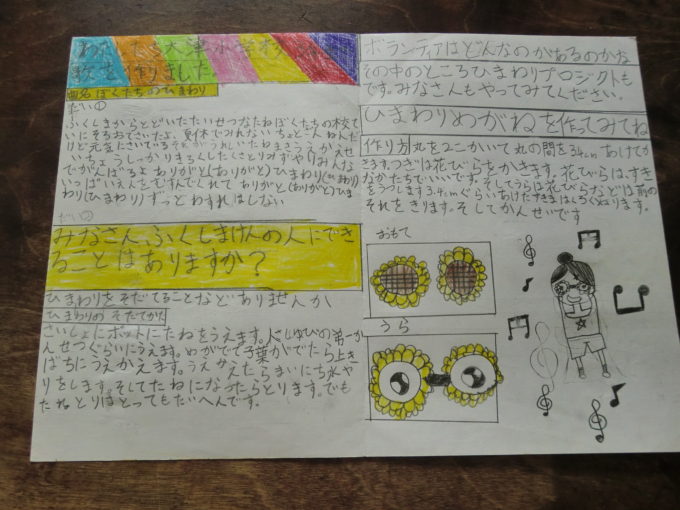 歌を作りました。
曲名 ぼくたちのひまわり
だい①
ふくしまからとどいたたいせつなたねぼくたちの校て
いにそろおでさいたよ。夏休でみれない ちょとざんねんだ
けど元気にさいてい
いちょうしっかりきろくしたくさとりみずやりみんな
でがんばるよ ありがと(ありがと)ひまわり(ひまわり)
いっぱいえんをむすんでくれて ありがと(ありがと)ひま
わり(ひまわり) ずっとわすれはしない
だい②
みなさん、ふくしまけんの人にでき
ることはありますか?
ひまわりをそだてることなどありませんか
ひまわりのそだてかた
さいしょにポットにたねをうえます。人さしゆびの第一か
んせつぐらいにうえます。めがでて子葉がでたら上き
ばちにうえかえます。うえかえたらまいにち水や
りをします。そしてたねになったらとります。でも
たねとりはとってもたいへんです。
ボランティアはどんなのがあるのかな
その中のところひまわりプロジクトも
です。みなさんもやってみてください。
ひまわりめがねを作ってみてね
作り方 丸を2こかいて丸の間を3.4cmあけてか
きます。つぎは花びらをかきます。花びらは、すき
なかたちでいいです。そしてうらは花びらなどは前の
をうつします3.4cmぐらいあけたすきまはしろくぬります。
それをきります。そしてかんせいです
おもて
うら